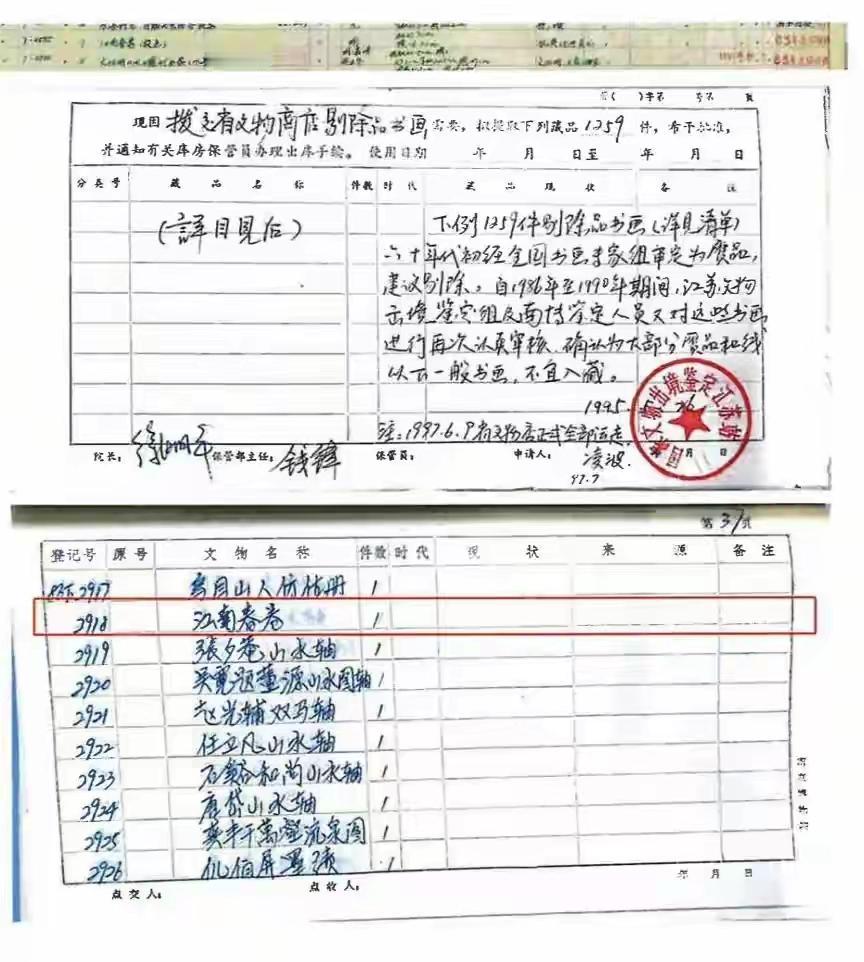 字( )字第 号第 页
现因 拨交省文物商店剔除品书画 需要，拟提取下列藏品1259件，希予批准，
并通知有关库房保管员办理出库手续。 使用日期 年 月 日至 年 月 日
分类号 藏品名称 件数 时代 藏品现状 备注
(详目见后)
下列1259件剔除品书画(详见清单)
六十年代初经全国书画专家组审定为赝品，
建议剔除。自1986年至1990年期间，江苏文物
出境鉴定组及南博鉴定人员又对这些书画
进行再次认真审核，确认为大部分赝品和线
以下一般书画，不宜入藏。
1995. 26
注：1997.6.9省文物店正式全部运走
国家文物出境鉴定江苏站
月 日
院长： 徐湖平 保管部主任： 钱锋 保管员： 申请人： 凌波
97.7
第37页
登记号 原号 文物名称 件数 时代 现状 来源 备注
2917 乌目山人仿古册 1
2918 江南春卷 1
2919 张夕庵山水轴 1
2920 吴宽题董源山水图轴 1
2921 赵光辅双马轴 1
2922 任立凡山水轴 1
2923 石谿和尚山水轴 1
2924 唐岱山水轴 1
2925 龚半千万壑流泉图 1
2926 1
年 月 日
点交人： 点收人：